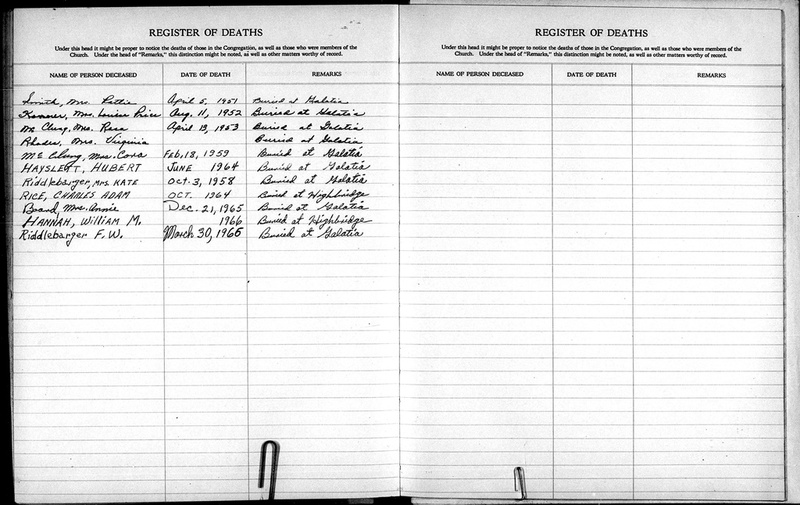 REGISTER OF DEATHS
Under this head it might be proper to notice the deaths of those in the Congregation, as well as those who were members of the
Church. Under the head of "Remarks," this distinction might be noted, as well as other matters worthy of record.
NAME OF PERSON DECEASED DATE OF DEATH REMARKS
Smith, Mrs. April 5, 1951 Buried at Galatia
Mrs. Louise Price Aug. 11, 1952 Buried at Galatia
Mc Clung, Mrs. Rosa April 13, 1953 Buried at Galatia
Rhodes, Mrs. Virginia Burried at Galatia
Mc Clung, Mrs. Cora Feb. 18, 1959 Buried at Galatia
HAYSLETT, HUBERT JUNE 1964 Buried at Galatia
Riddlebarger, MRS. KATE Oct. 3, 1958 Buried at Galatia
RICE, CHARLES ADAM OCT. 1964 Buried at Highbridge
Board, Mrs. Annie Dec. 21, 1965 Buried at Galatia
HANNAH, William M. 1966 Buried at Highbridge
Riddlebarger F. W. March 30, 1966 Buried at Galatia
REGISTER OF DEATHS
Under this head it might be proper to notice the deaths of those in the Congregation, as well as those who were members of the
Church. Under the head of "Remarks," this distinction might be noted, as well as other matters worthy of record.
NAME OF PERSON DECEASED DATE OF DEATH REMARKS